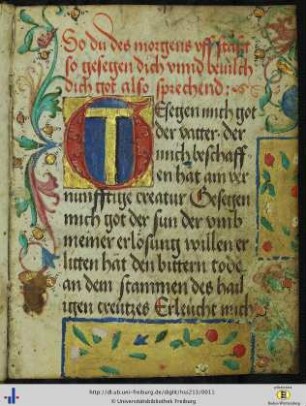 So du des morgens uff stast
so gesegen dich vnnd beuilch
dich got also sprechend :
GEsegen mich got
der vatter · der
mich beschaff
en hat ain ver
nunfftige creatur Gesegen
mich got der sun der vmb
meiner erlösung willen er
litten hat den bittern tode
an dem stammen des hail
igen creutzes Erleucht mich
http://dl.ub.uni-freiburg.de/diglit/hs211/0011
© Universitätsbibliothek Freiburg
Baden-Württemberg